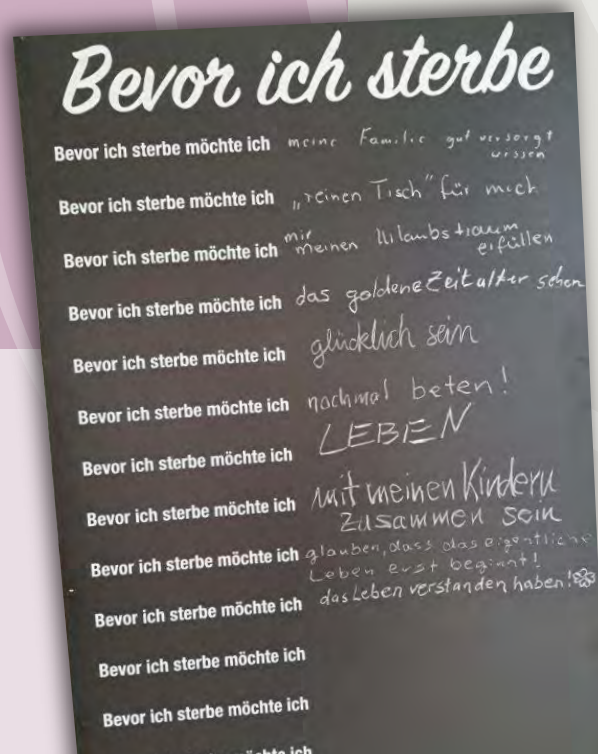 Bevor ich sterbe
Bevor ich sterbe möchte ich meine Familie gut versorgt
wissen
Bevor ich sterbe möchte ich „reinen Tisch" für mich
Bevor ich sterbe möchte ich mir meinen Urlaubstraum
erfüllen
Bevor ich sterbe möchte ich das goldene Zeitalter sehen
Bevor ich sterbe möchte ich glücklich sein
Bevor ich sterbe möchte ich nochmal beten!
Bevor ich sterbe möchte ich LEBEN
Bevor ich sterbe möchte ich mit meinen Kindern
zusammen sein
Bevor ich sterbe möchte ich glauben, dass das eigentliche
Leben erst beginnt!
Bevor ich sterbe möchte ich das Leben verstanden haben!
Bevor ich sterbe möchte ich
Bevor ich sterbe möchte ich
möchte ich